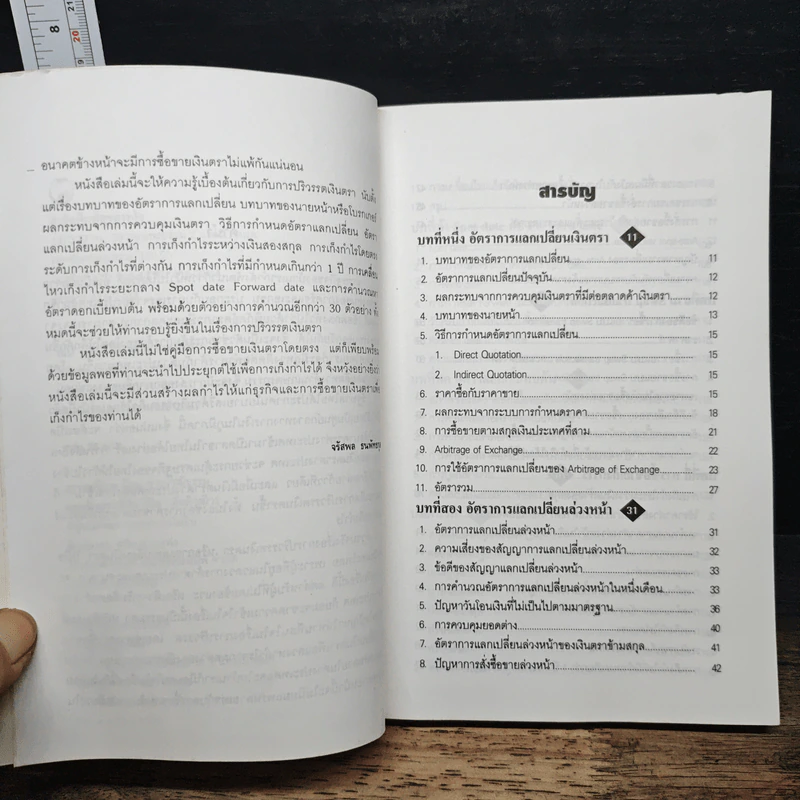 อนาคตข้างหน้าจะมีการซื้อขายเงินตราไม่แพ้กันแน่นอน
หนังสือเล่มนี้จะให้ความรู้เบื้องต้นเกี่ยวกับการปริวรรตเงินตรา นับตั้ง
แต่เรื่องบทบาทของอัตราการแลกเปลี่ยน บทบาทของนายหน้าหรือโบรกเกอร์
ผลกระทบจากการควบคุมเงินตรา วิธีการกำหนดอัตราแลกเปลี่ยน อัตรา
แลกเปลี่ยนล่วงหน้า การเก็งกำไรระหว่างเงินสองสกุล การเก็งกำไรโดยตรง
ระดับการเก็งกำไรที่ต่างกัน การเก็งกำไรที่มีกำหนดเกินกว่า 1 ปี การเคลื่อน
ไหวเก็งกำไรระยะกลาง Spot date Forward date และการคำนวณหา
อัตราดอกเบี้ยทบต้น พร้อมด้วยตัวอย่างการคำนวณอีกกว่า 30 ตัวอย่าง
หมดนี้จะช่วยให้ท่านรอบรู้ยิ่งขึ้นในเรื่องการปริวรรตเงินตรา
หนังสือเล่มนี้ไม่ใช่คู่มือการซื้อขายเงินตราโดยตรง แต่ก็เพียบพร้อม
ด้วยข้อมูลพอที่ท่านจะนำไปประยุกต์ใช้เพื่อการเก็งกำไรได้ จึงหวังอย่างยิ่งว่า
หนังสือเล่มนี้จะมีส่วนสร้างผลกำไรให้แก่ธุรกิจและการซื้อขายเงินตราเพื่อ
เก็งกำไรของท่านได้
จรัสพล
สารบัญ
บทที่หนึ่ง อัตราการแลกเปลี่ยนเงินตรา 11
1. บทบาทของอัตราการแลกเปลี่ยน 11
2. อัตราการแลกเปลี่ยนปัจจุบัน 12
3. ผลกระทบจากการควบคุมเงินตราที่มีต่อตลาดค้าเงินตรา 12
4. บทบาทของนายหน้า 13
5. วิธีการกำหนดอัตราการแลกเปลี่ยน 15
1. Direct Quotation 15
2. Indirect Quotation 15
6. ราคาซื้อกับราคาขาย 15
7. ผลกระทบจากระบบการกำหนดราคา 18
8. การซื้อขายตามสกุลเงินประเทศที่สาม 21
9. Arbitrage of Exchange 22
10. การใช้อัตราการแลกเปลี่ยนของ Arbitrage of Exchange 23
11. อัตรารวม 27
บทที่สอง อัตราการแลกเปลี่ยนล่วงหน้า 31
1. อัตราการแลกเปลี่ยนล่วงหน้า 31
2. ความเสี่ยงของสัญญาการแลกเปลี่ยนล่วงหน้า 32
3. ข้อดีของสัญญาแลกเปลี่ยนล่วงหน้า 33
4. การคำนวณอัตราการแลกเปลี่ยนล่วงหน้าในหนึ่งเดือน 33
5. ปัญหาวันโอนเงินที่ไม่เป็นไปตามมาตรฐาน 36
6. การควบคุมยอดต่าง 40
7. อัตราการแลกเปลี่ยนล่วงหน้าของเงินตราข้ามสกุล 41
8. ปัญหาการสั่งซื้อขายล่วงหน้า 42
8
20
9